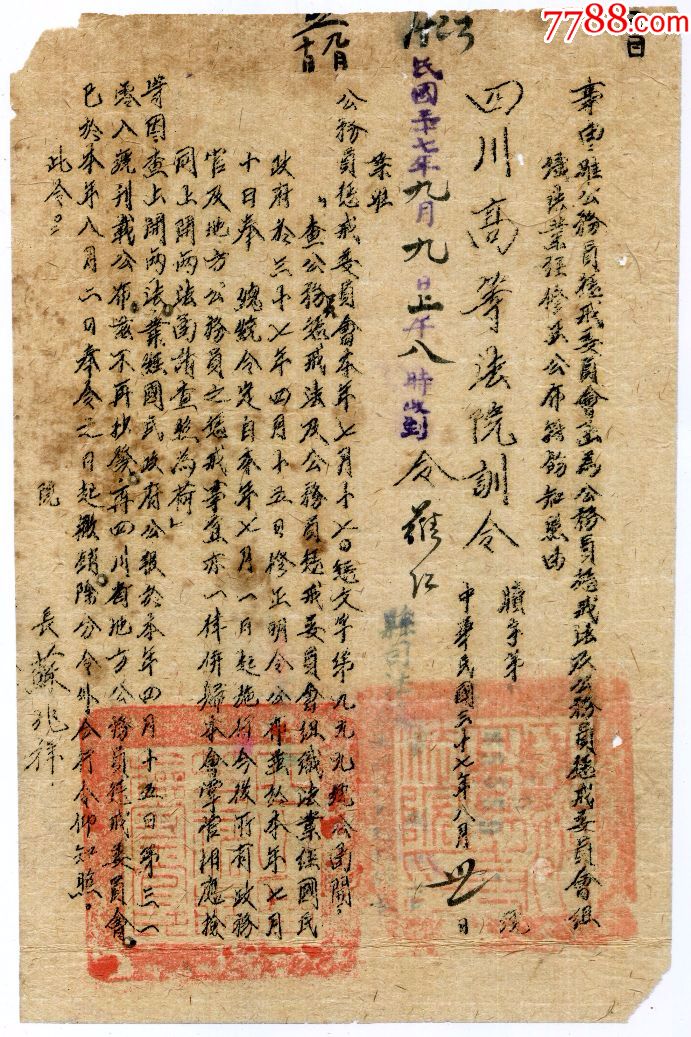 7788.com
中国收藏热线
事由 雖公務員懲戒委員會函為公務員懲戒法及公務員懲戒委員會組
織法業經修正公布轉飭知照由
四川高等法院訓令
牘字第 號
中華民國三十七年八月廿日
民國卅七年九月九日上午八時收到
令
縣司法
案准
公務員懲戒委員會本年七月十七日懲文字第九九九號公函開：
「查公務員懲戒法及公務員懲戒委員會組織法業經國民
政府於三十七年四月十五日修正明令公布並於本年七月
十日奉 總統令定自本年七月一日起施行今後所有政務
官及地方公務員之懲戒事宜亦一律併歸本會掌管相應檢
同上開兩法函請查照為荷」
等因查上開兩法業經國民政府公報於本年四月十五日第三一
零八號刊載公布茲不再抄發再四川省地方公務員懲戒委員會
已於本年八月二日奉令之日起撤銷除分令外合行令仰知照。
此令。
院長 蘇兆祥